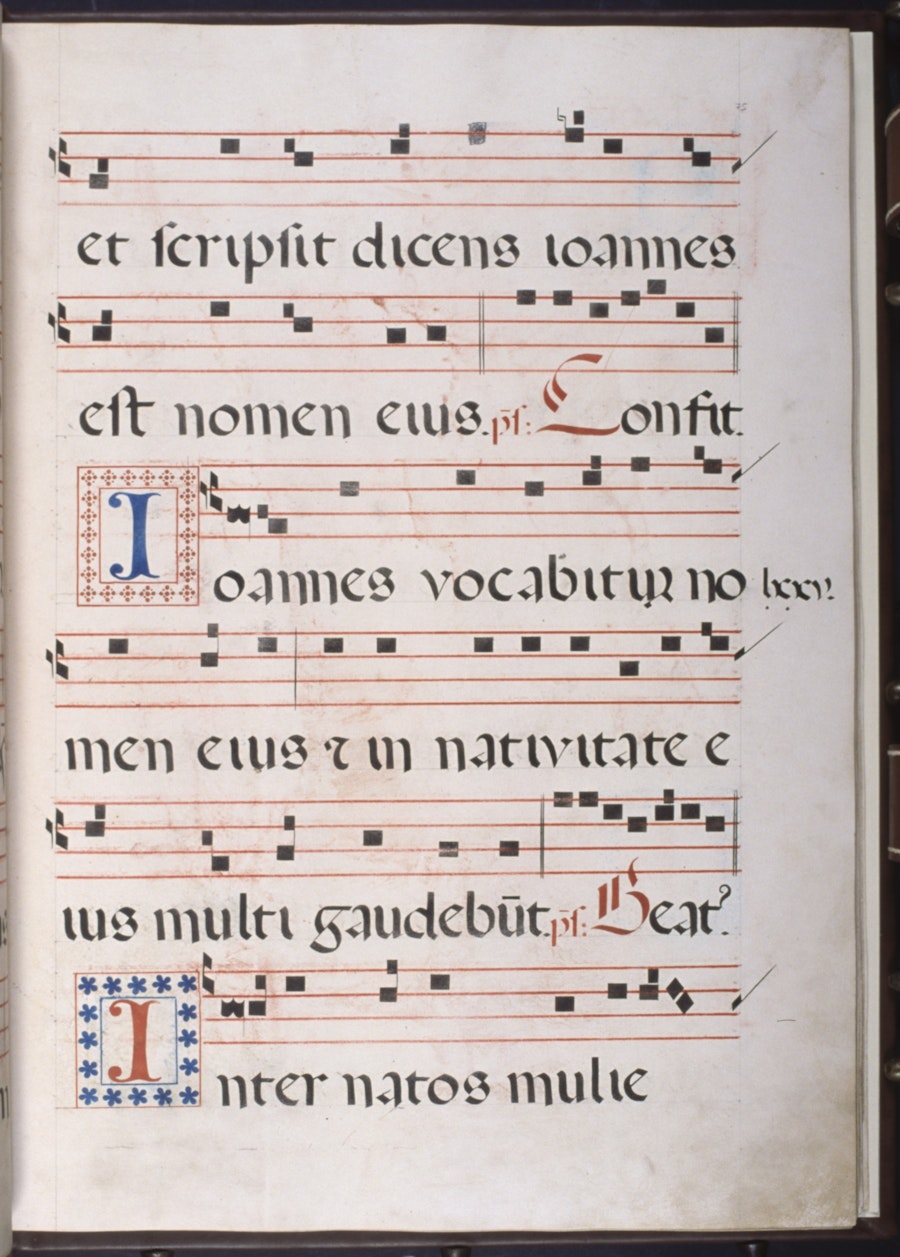 75
et ſcripſit dicens ioannes
eſt nomen eius. p̄ſ: Confit.
Ioannes vocabitur no lxxv.
men eius ⁊ in nativitate e
ius multi gaudebūt. p̄ſ: Beatꝰ.
Inter natos mulie